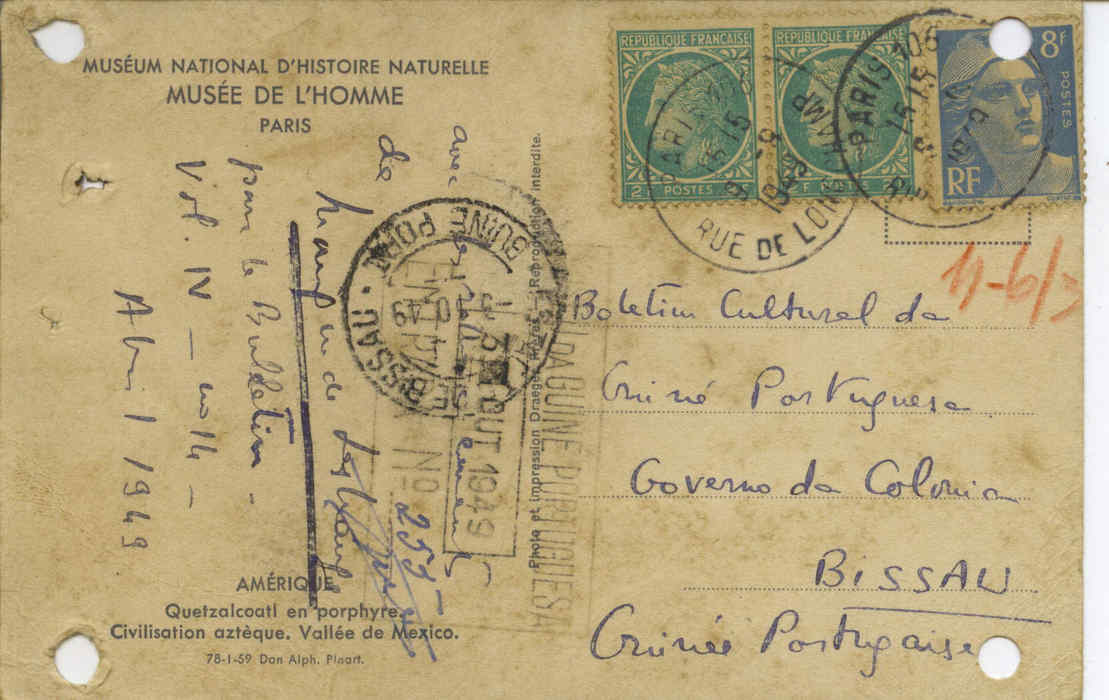 MUSÉUM NATIONAL D'HISTOIRE NATURELLE
MUSÉE DE L'HOMME
PARIS
avec
de
pour le Bulletin -
Vol. IV - no 14 -
Abril 1949
AMÉRIQUE
Quetzalcoatl en porphyre.
Civilisation aztèque. Vallée de Mexico.
78-1-59 Don Alph. Pinart.
Photo et impression Draeger Reproduction interdite.
GUINE PORT
BISSAU
OUT 1949
No 255
DA GUINE PORTUGUESA
RÉPUBLIQUE FRANÇAISE
2F POSTES
RÉPUBLIQUE FRANÇAISE
F POSTES
8F
POSTES
RF
PARIS 106
15 15
9 - 9
1949
RUE DE LONGCHAMP
PARIS 106
15 15
1949
11-6/
Boletim Cultural da
Guiné Portuguesa
Governo da Colonia
BISSAU
Guinée Portugaise